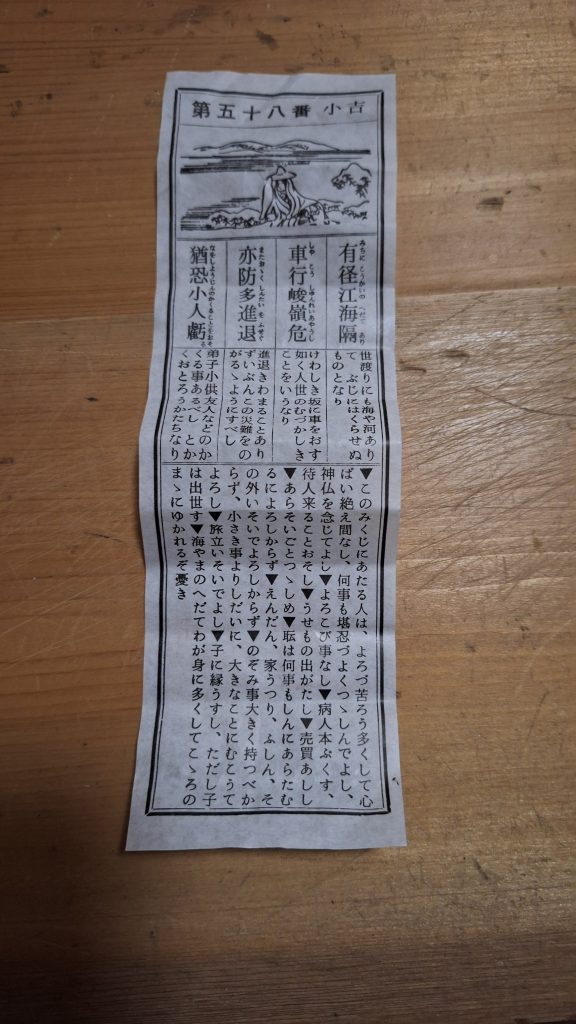 第五十八番 小吉
有径江海隔
みちに こうかいの へだて あり
車行峻嶺危
しや とう しゆんれいあやうし
亦防多進退
またおゝく しんたい を ふせぐ
猶恐小人虧
なをしようじんのかくることをおそる
世渡りにも海や河あり
て ぶじにはくらせぬ
ものとなり
けわしき坂に車をおす
如く人世のむづかしき
ことをいうなり
進退きわまることあり
ずいぶんこの災難をの
がるゝようにすべし
弟子小供友人などのか
くる事あるべし とか
くおとろうかたちなり
▼このみくじにあたる人は、よろづ苦ろう多くして心
ぱい絶え間なし、何事も堪忍づよくつゝしんでよし、
神仏を念じてよし▼よろこび事なし▼病人本ぷくす、
待人来ることおそし▼うせもの出がたし▼売買あしし
▼あらそいごとつゝしめ▼耺は何事もしんにあらたむ
るによろしからず▼えんだん、家うつり、ふしん、そ
の外いそいでよろしからず▼のぞみ事大きく持つべか
らず、小さき事よりしだいに、大きなことにむこうて
よろし▼旅立いそいでよし▼子に縁うすし、ただし子
は出世す▼海やまのへだてわが身に多くしてこゝろの
まゝにゆかれるぞ憂き